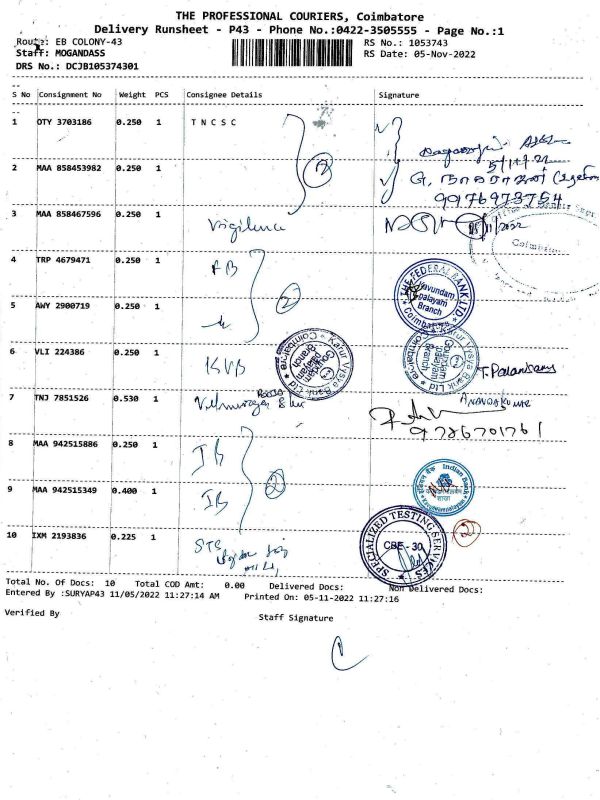 THE PROFESSIONAL COURIERS, Coimbatore
Delivery Runsheet - P43 - Phone No.:0422-3505555 - Page No.:1
Route: EB COLONY-43 RS No.: 1053743
Staff: MOGANDASS RS Date: 05-Nov-2022
DRS No.: DCJB105374301
S No Consignment No Weight PCS Consignee Details Signature
1 OTY 3703186 0.250 1 T N C S C
2 MAA 858453982 0.250 1
9976973754
3 MAA 858467596 0.250 1 Vigilence
4 TRP 4679471 0.250 1 FB 2 THE FEDERAL BANK LTD. Branch
5 AWY 2900719 0.250 1
6 VLI 224386 0.250 1 KVB Karur Vysya Bank Ltd Branch Coimbatore
7 TNJ 7851526 0.530 1 ANANDAKUMAR
9786701761
8 MAA 942515886 0.250 1 IB 2 Indian Bank
9 MAA 942515349 0.400 1 IB
10 IXM 2193836 0.225 1 STS SPECIALIZED TESTING SERVICES CBE - 30 2
Total No. Of Docs: 10 Total COD Amt: 0.00 Delivered Docs: Non Delivered Docs:
Entered By :SURYAP43 11/05/2022 11:27:14 AM Printed On: 05-11-2022 11:27:16
Verified By Staff Signature